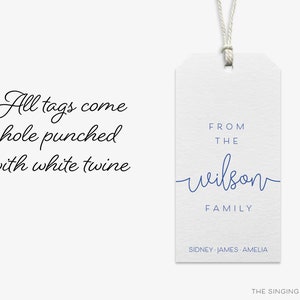 All tags come
hole punched
with white twine
FROM
THE
wilson
FAMILY
SIDNEY · JAMES · AMELIA
THE SINGING